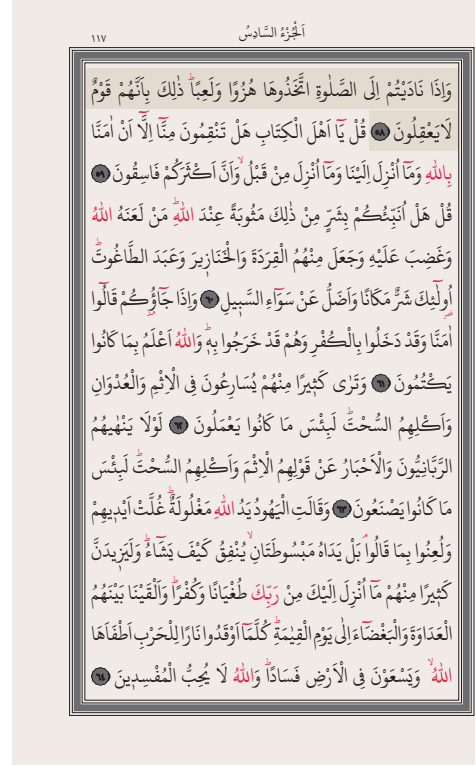 اَلْجُزْءُ السَّادِسُ
١١٧
وَاِذَا نَادَيْتُمْ اِلَى الصَّلٰوةِ اتَّخَذُوهَا هُزُوًا وَلَعِبًاۜ ذٰلِكَ بِاَنَّهُمْ قَوْمٌ
لَايَعْقِلُونَ ٥٨ قُلْ يَٓا اَهْلَ الْكِتَابِ هَلْ تَنْقِمُونَ مِنَّٓا اِلَّٓا اَنْ اٰمَنَّا
بِاللّٰهِ وَمَٓا اُنْزِلَ اِلَيْنَا وَمَٓا اُنْزِلَ مِنْ قَبْلُۙ وَاَنَّ اَكْثَرَكُمْ فَاسِقُونَ ٥٩
قُلْ هَلْ اُنَبِّئُكُمْ بِشَرٍّ مِنْ ذٰلِكَ مَثُوبَةً عِنْدَ اللّٰهِۜ مَنْ لَعَنَهُ اللّٰهُ
وَغَضِبَ عَلَيْهِ وَجَعَلَ مِنْهُمُ الْقِرَدَةَ وَالْخَنَازٖيرَ وَعَبَدَ الطَّاغُوتَۜ
اُولٰٓئِكَ شَرٌّ مَكَانًا وَاَضَلُّ عَنْ سَوَٓاءِ السَّبٖيلِ ٦٠ وَاِذَا جَٓاؤُ۫كُمْ قَالُٓوا
اٰمَنَّا وَقَدْ دَخَلُوا بِالْكُفْرِ وَهُمْ قَدْ خَرَجُوا بِهٖۜ وَاللّٰهُ اَعْلَمُ بِمَا كَانُوا
يَكْتُمُونَ ٦١ وَتَرٰى كَثٖيرًا مِنْهُمْ يُسَارِعُونَ فِى الْاِثْمِ وَالْعُدْوَانِ
وَاَكْلِهِمُ السُّحْتَۜ لَبِئْسَ مَا كَانُوا يَعْمَلُونَ ٦٢ لَوْلَا يَنْهٰيهُمُ
الرَّبَّانِيُّونَ وَالْاَحْبَارُ عَنْ قَوْلِهِمُ الْاِثْمَ وَاَكْلِهِمُ السُّحْتَۜ لَبِئْسَ
مَا كَانُوا يَصْنَعُونَ ٦٣ وَقَالَتِ الْيَهُودُ يَدُ اللّٰهِ مَغْلُولَةٌۜ غُلَّتْ اَيْدٖيهِمْ
وَلُعِنُوا بِمَا قَالُواۢ بَلْ يَدَاهُ مَبْسُوطَتَانِۙ يُنْفِقُ كَيْفَ يَشَٓاءُۜ وَلَيَزٖيدَنَّ
كَثٖيرًا مِنْهُمْ مَٓا اُنْزِلَ اِلَيْكَ مِنْ رَبِّكَ طُغْيَانًا وَكُفْرًاۜ وَاَلْقَيْنَا بَيْنَهُمُ
الْعَدَاوَةَ وَالْبَغْضَٓاءَ اِلٰى يَوْمِ الْقِيٰمَةِۜ كُلَّمَٓا اَوْقَدُوا نَارًا لِلْحَرْبِ اَطْفَاَهَا
اللّٰهُۙ وَيَسْعَوْنَ فِى الْاَرْضِ فَسَادًاۜ وَاللّٰهُ لَا يُحِبُّ الْمُفْسِدٖينَ ٦٤